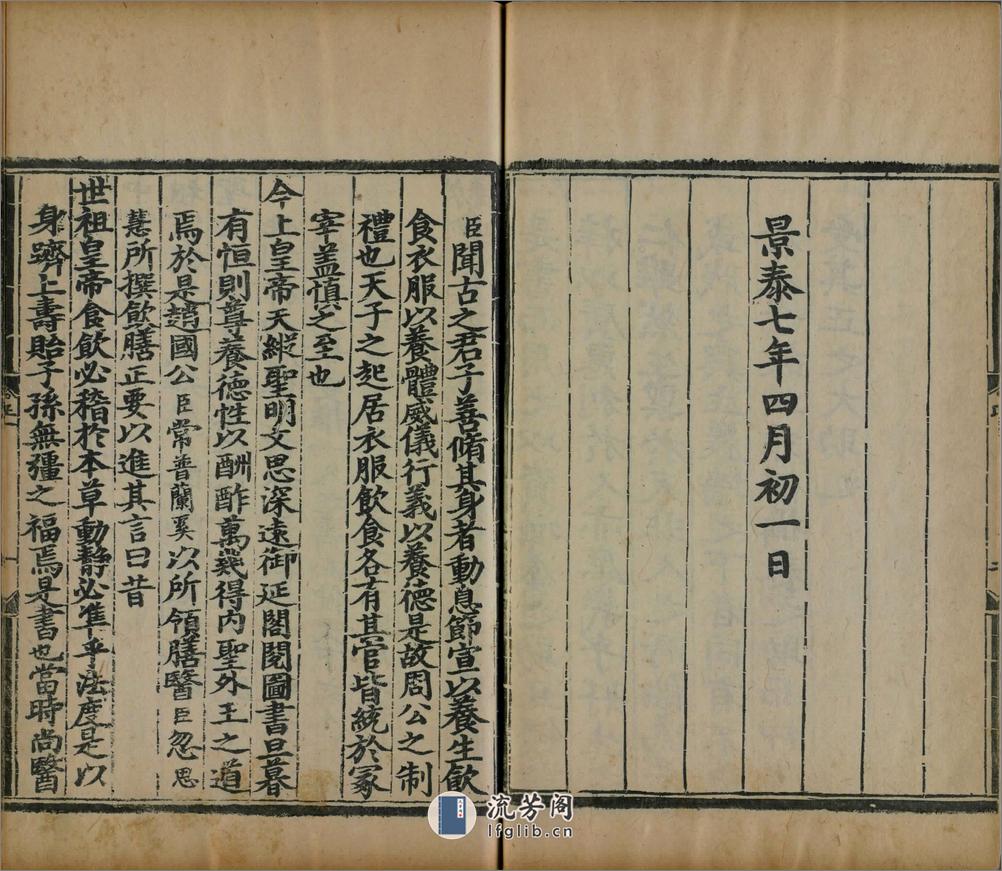 景泰七年四月初一日
臣聞古之君子善脩其身者動息節宣以養生飲
食衣服以養體威儀行義以養德是故周公之制
禮也天子之起居衣服飲食各有其官皆統於冢
宰盖慎之至也
今上皇帝天縱聖明文思深遠御延閣閱圖書旦暮
有恒則尊養德性以酬酢萬幾得内聖外王之道
焉於是趙國公臣常普蘭奚以所領膳醫臣忽思
慧所撰飲膳正要以進其言曰昔
世祖皇帝食飲必稽於本草動静必準乎法度是以
身躋上壽貽子孫無疆之福焉是書也當時尚醫
流芳阁
lfglib.cn